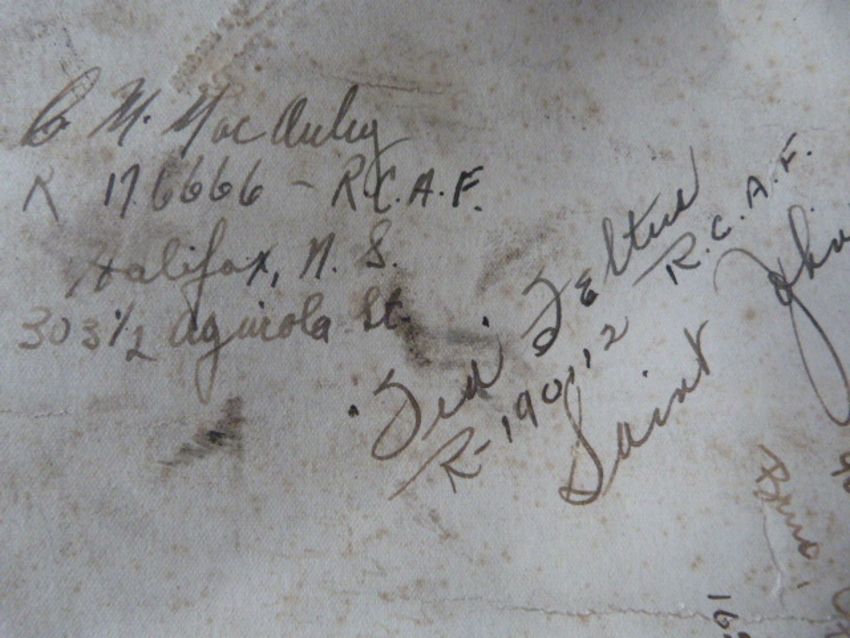 C M. MacAuley
R 176666 - R.C.A.F.
Halifax, N. S.
303 1/2 Agricola St.
Ted Feltus
R-190112 R.C.A.F.
Saint John